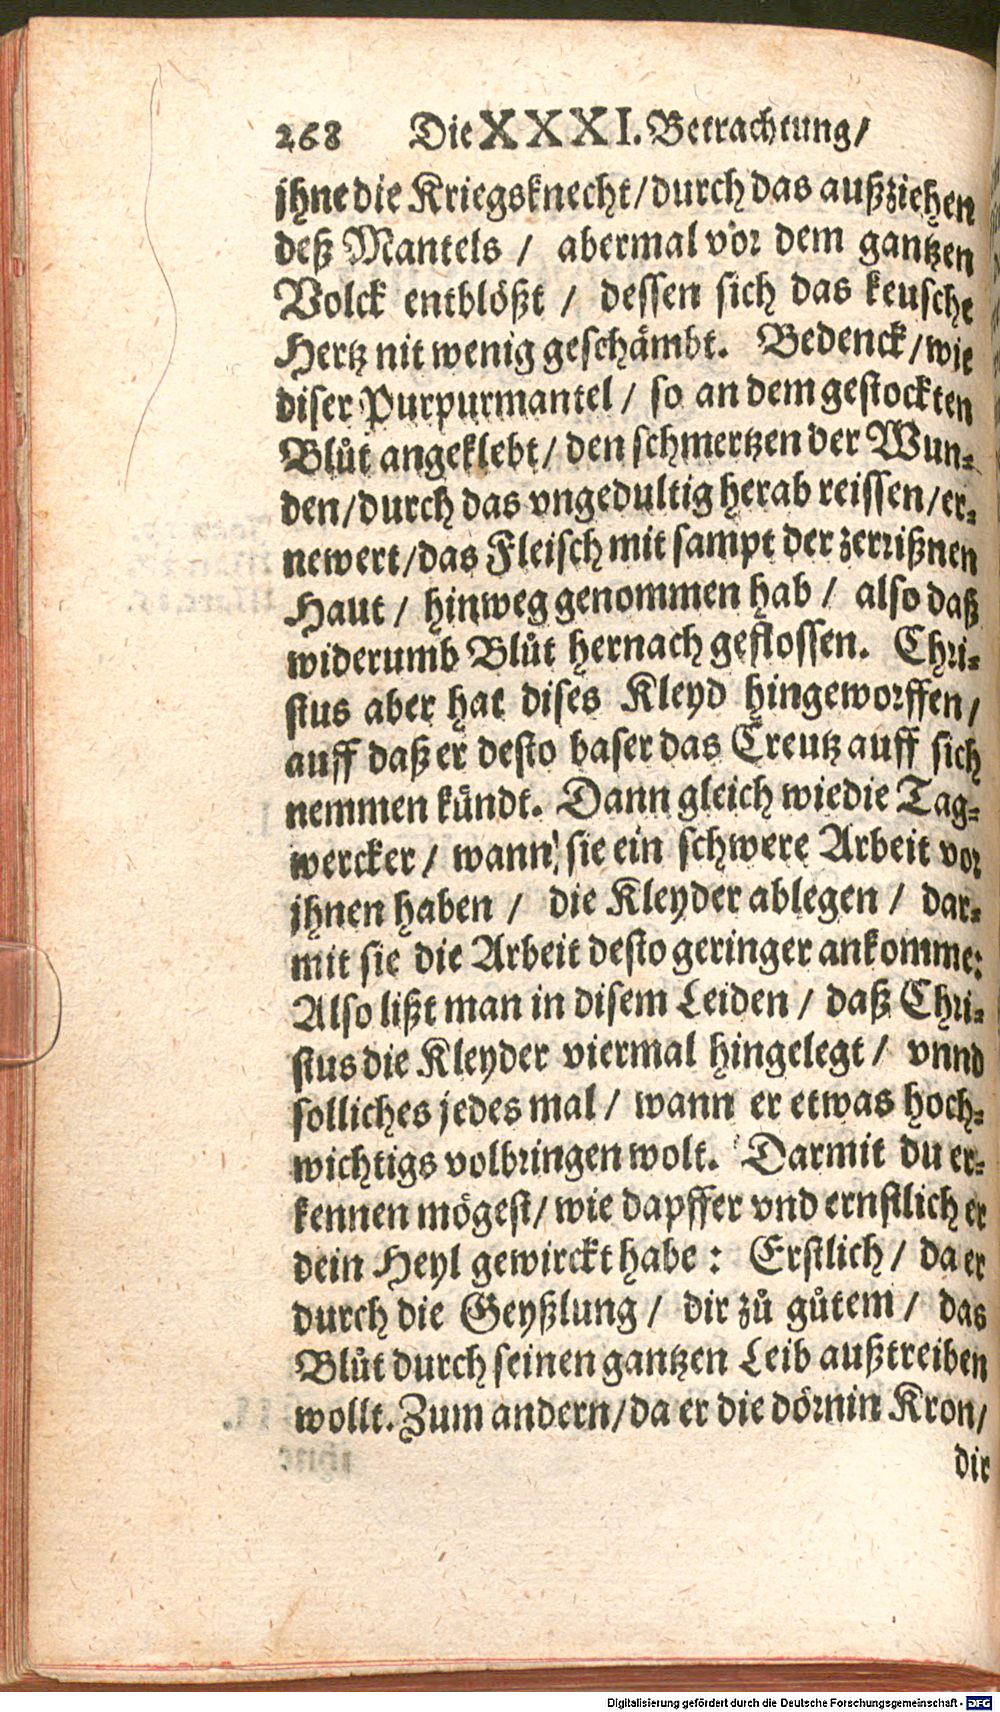 268 Die XXXI. Betrachtung/
jhne die Kriegsknecht/durch das außziehen
deß Mantels / abermal vor dem gantzen
Volck entblößt / dessen sich das keusche
Hertz nit wenig geschämbt. Bedenck/wie
diser Purpurmantel / so an dem gestockten
Blůt angeklebt/ den schmertzen der Wun-
den/durch das vngedultig herab reissen/er-
newert/das Fleisch mit sampt der zerrißnen
Haut / hinweg genommen hab / also daß
widerumb Blůt hernach geflossen. Chri-
stus aber hat dises Kleyd hingeworffen/
auff daß er desto baser das Creutz auff sich
nemmen kündt. Dann gleich wie die Tag-
wercker / wann sie ein schwere Arbeit vor
jhnen haben / die Kleyder ablegen / dar-
mit sie die Arbeit desto geringer ankomme:
Also lißt man in disem Leiden / daß Chri-
stus die Kleyder viermal hingelegt / vnnd
solliches jedes mal / wann er etwas hoch-
wichtigs volbringen wolt. Darmit du er-
kennen mögest/ wie dapffer vnd ernstlich er
dein Heyl gewirckt habe : Erstlich / da er
durch die Geyßlung / dir zů gůtem / das
Blůt durch seinen gantzen Leib außtreiben
wollt. Zum andern/da er die dörnin Kron/
dir
Digitalisierung gefördert durch die Deutsche Forschungsgemeinschaft - DFG